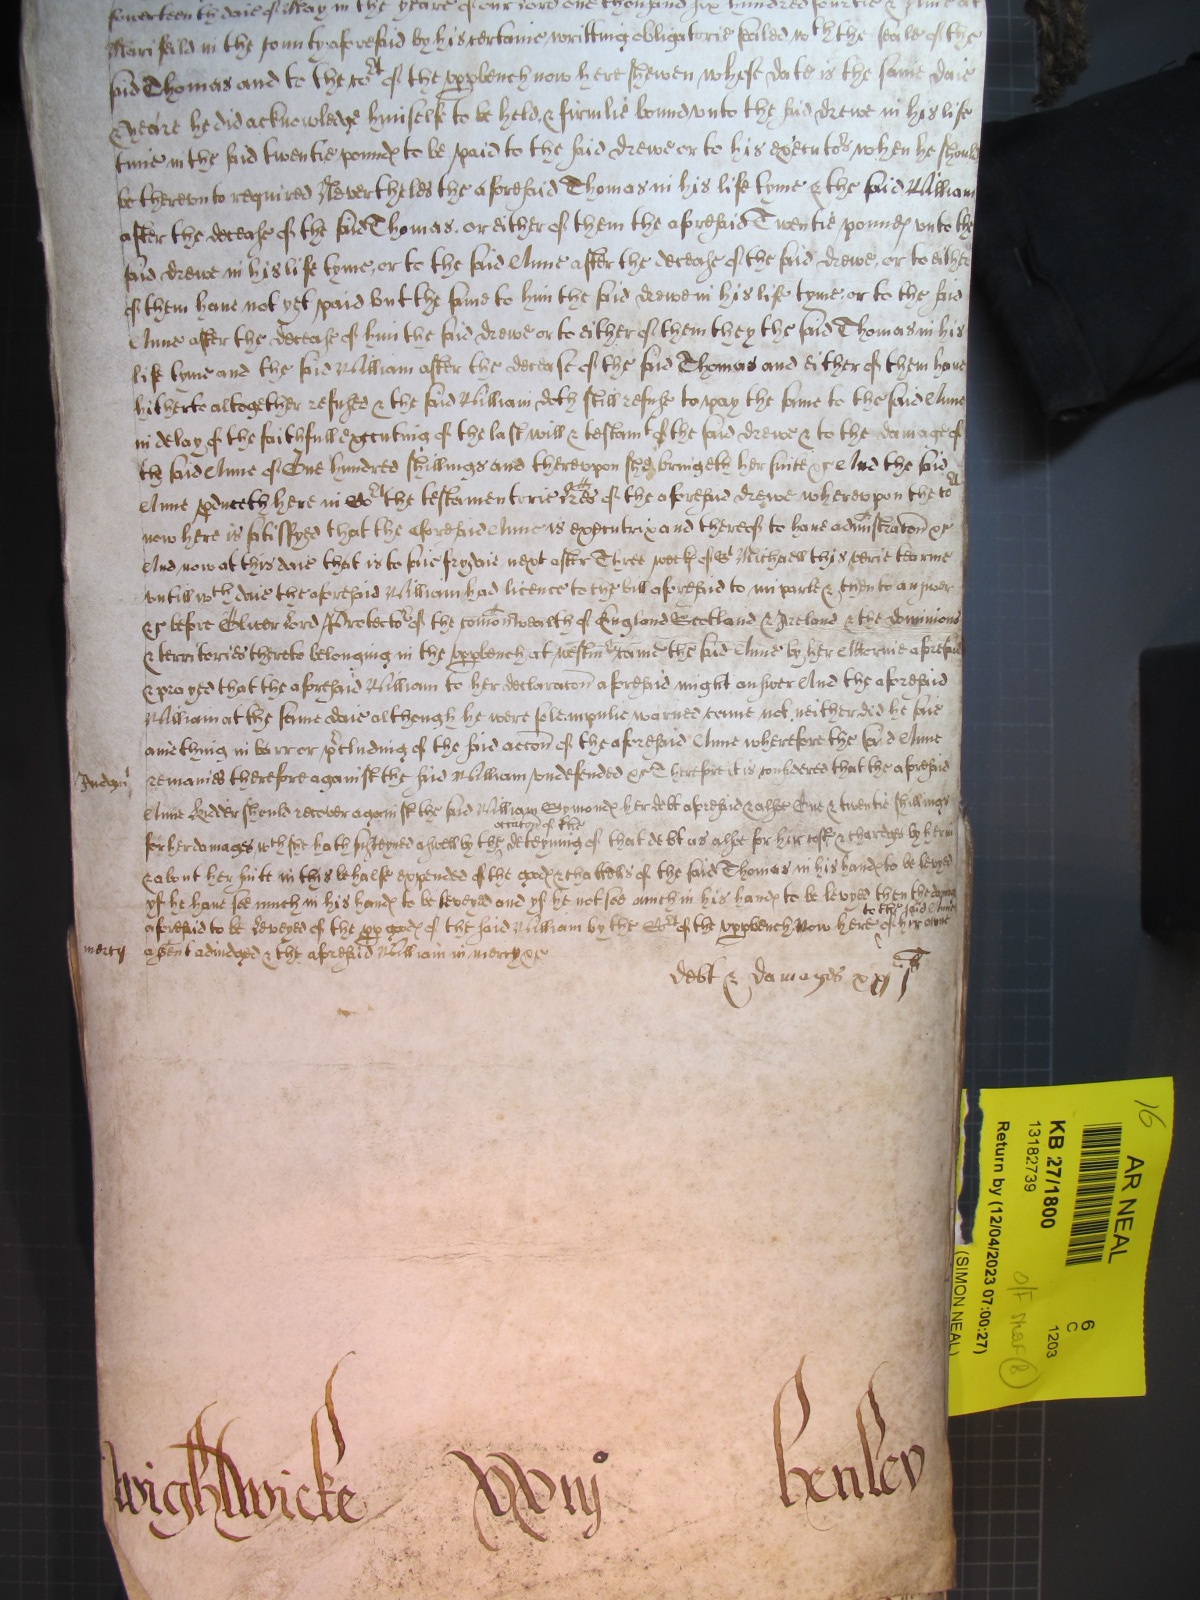 fowerteenth daie of May in the yeare of our lord one thousand six hundred fourtie & Nine at
Marifeild in the County aforesaid by his certaine writting obligatorie sealed wth the seale of the
said Thomas and to the Cort of the vppbench now here shewen whose date is the same daie
& yeare he did acknowledge himselfe to be held & firmlie bound vnto the said Drewe in his life
time in the said twentie pounds to be paid to the said Drewe or to his executors when he should
be therevnto required Neverthelesse the aforesaid Thomas in his life tyme & the said William
after the decease of the said Thomas. or either of them the aforesaid Twentie pounds vnto the
said Drewe in his life tyme, or to the said Anne after the decease of the said Drewe, or to either
of them haue not yet paid But the same to him the said Drewe in his life tyme, or to the said
Anne after the decease of him the said Drewe or to either of them they the said Thomas in his
life tyme and the said William after the decease of the said Thomas and either of them haue
hitherto altogether refused & the said William doth still refuse to pay the same to the said Anne
in delay of the faithfull executing of the last will & testamt of the said Drewe & to the damage of
the said Anne of One hundred shillings and therevpon shee bringeth her suite &c And the said
Anne pduceth here in Cort the testamentorie lres of the aforesaid Drewe wherevpon the Cort
now here is satisfyed that the aforesaid Anne is executrix and thereof to haue administracon &c
And now at this daie that is to saie frydaie next after Three weeks of St Michaell this verie tearme
vntill wch daie the aforesaid William had licence to the bill aforesaid to imparle & then to answer
&c before Oliver Lord Protector of the comonwealth of England Scotland & Ireland & the dominions
& territories thereto belonging in the vppbench at westmr came the said Anne by her Attornie aforesaid
& prayed that the aforesaid William to her declaracon aforesaid might answer And the aforesaid
William at the same daie although he were solempnlie warned came not neither did he saie
aniething in barr or pcluding of the said accon of the aforesaid Anne wherefore the said Anne
Judgmt
remaines therefore against the said William vndefended &c Therefore it is considered that the aforesaid
Anne Kidder should recover against the said William Symonds her debt aforesaid & alsoe One & twentie shillings
occacon of the
for her damages wch shee hath susteyned aswell by the deteyning of that debt as alsoe for her costs & chardges by her in
& about her suite in this behalfe expended of the goods & chattells of the said Thomas in his hands to be levyed
yf he haue soe much in his hands to be leveyed and yf he not soe much in his hands to be levyed then the damages
to the said Anne
aforesaid to be leveyed of the pp goods of the said William by the Cort of the vppbench Now here of her owne
mercy
assent adiudged & the aforesaid William in mercy &c
Debt & Damages xxj li
wightwicke xviij henley
16
AR NEAL
KB 27/1800
13182739
Return by (12/04/2023 07:00:27)
(SIMON NEAL)
6
C
1203